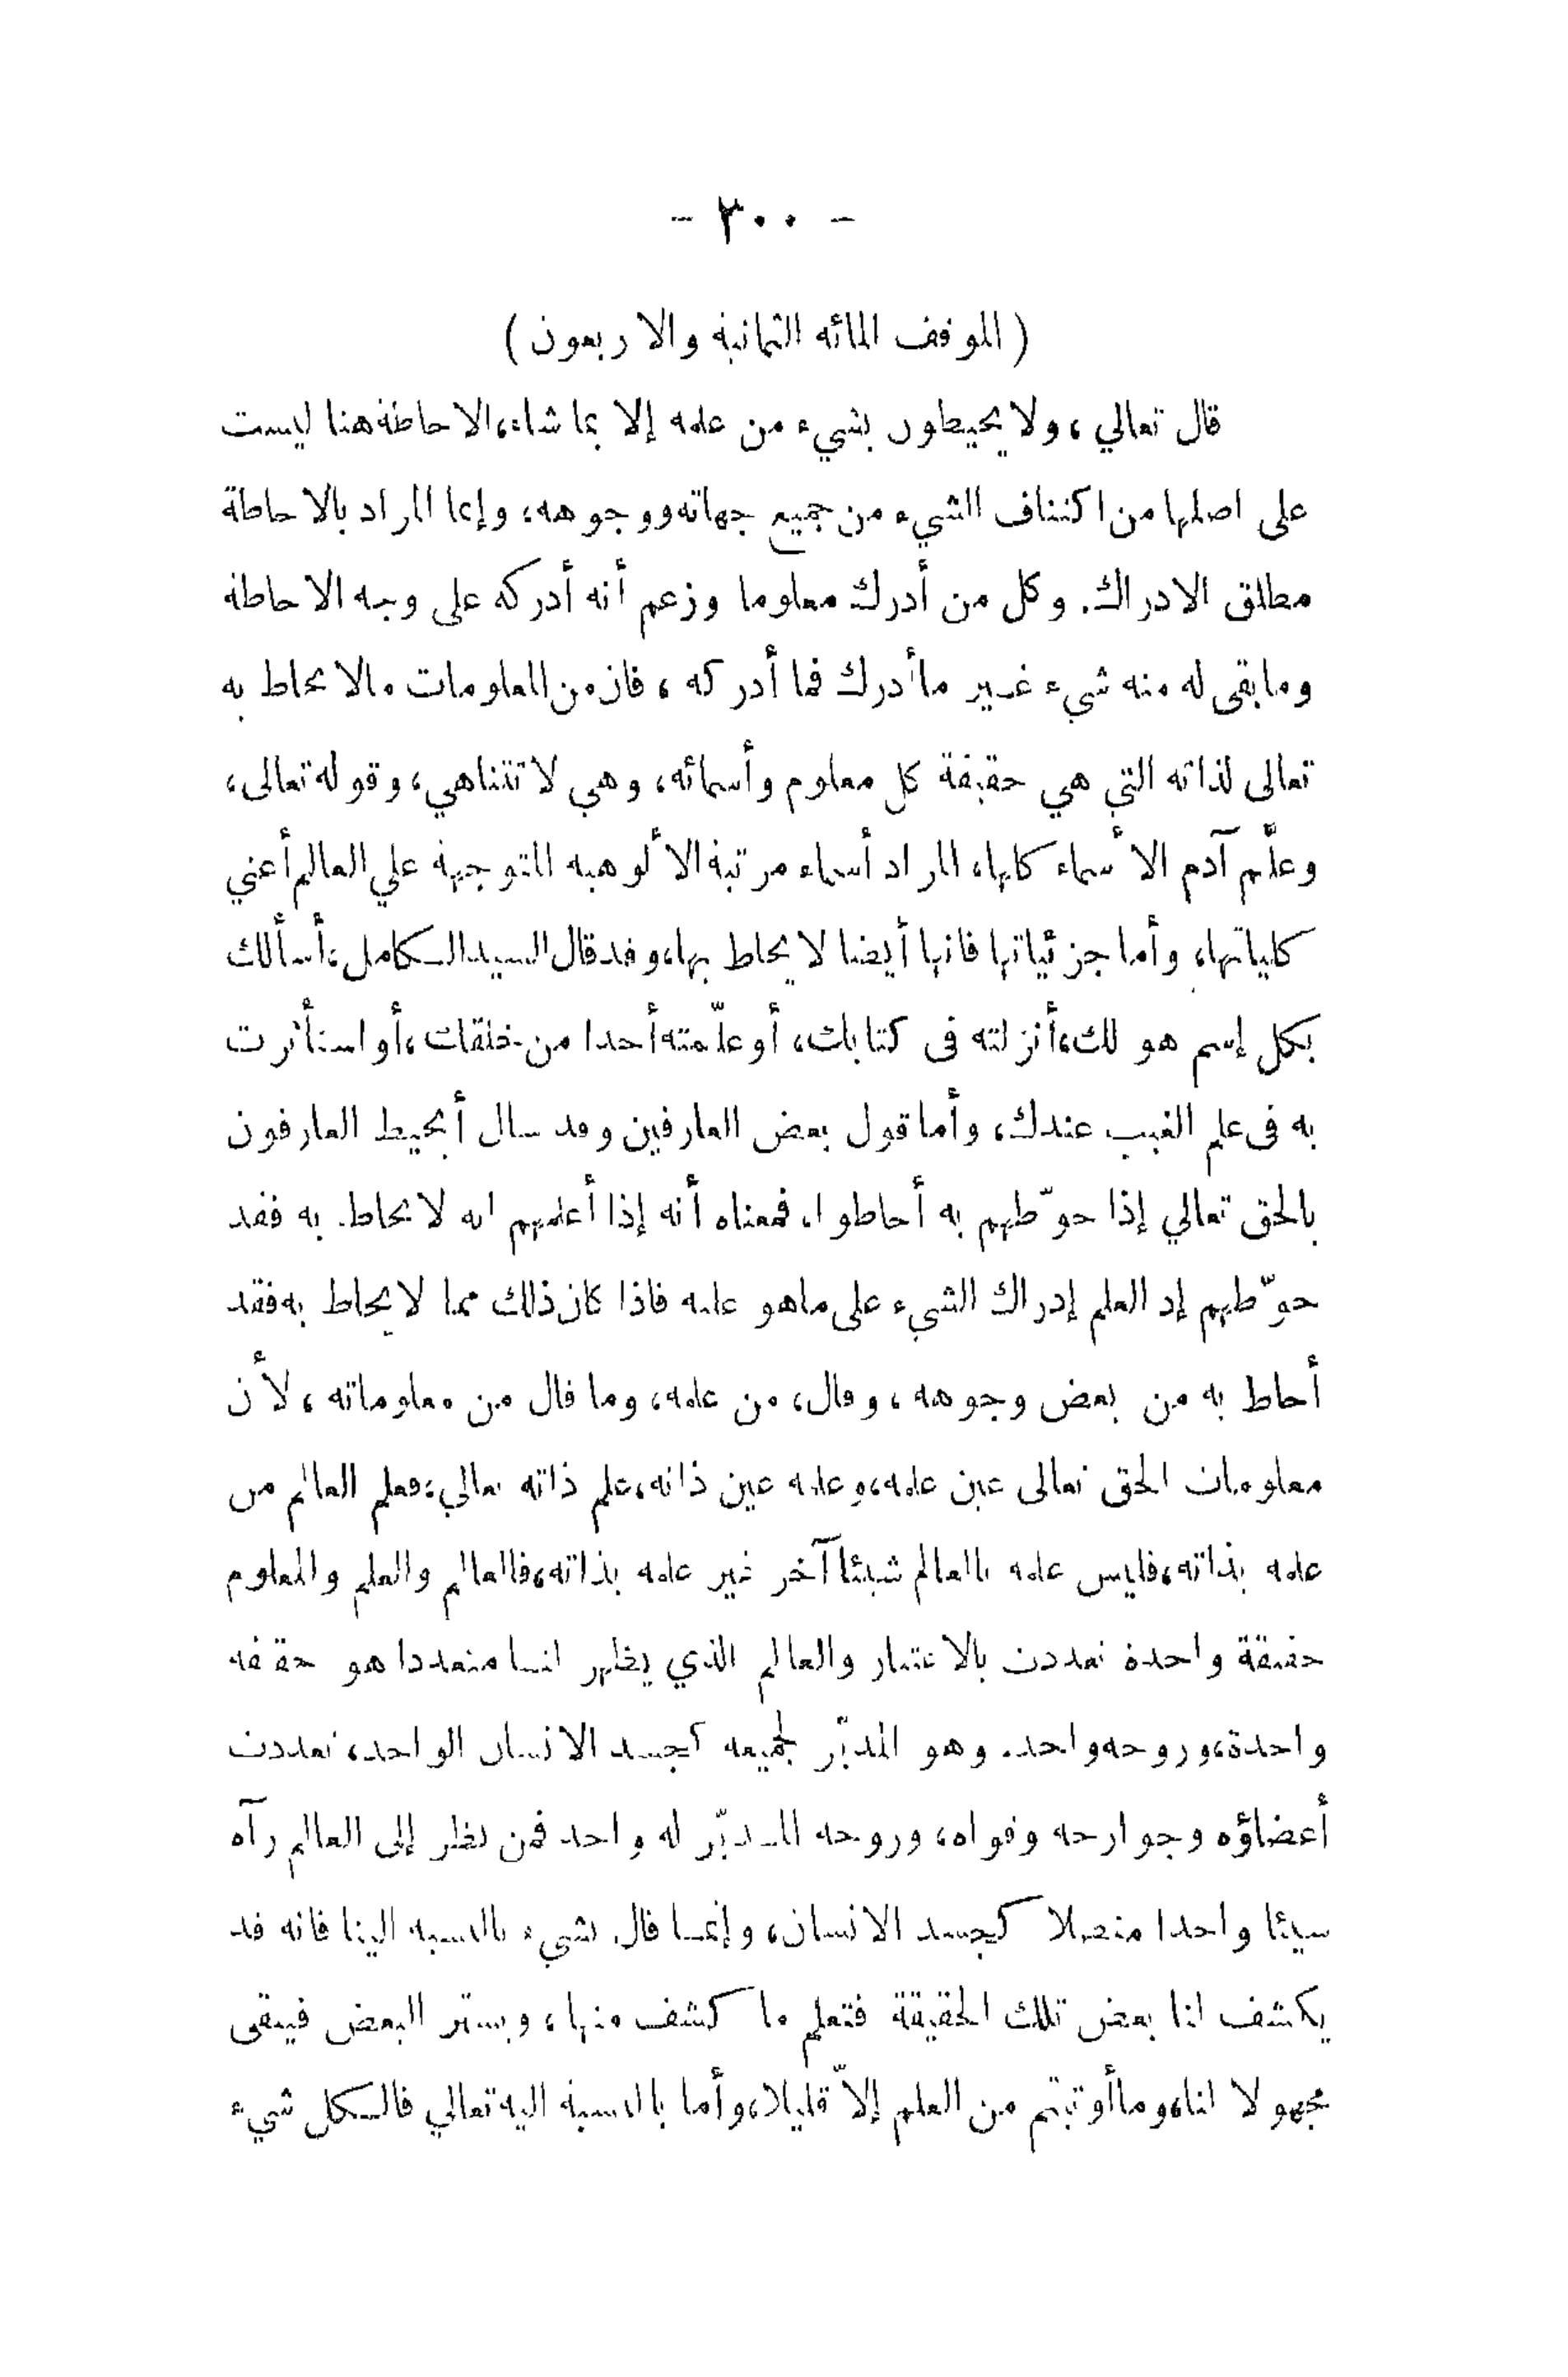 - ٣٠٠ -
( الموقف المائه الثمانية والاربعون )
قال تعالي ، ولا يحيطون بشيء من علمه إلا بما شاء، الاحاطة هنا ليست
على اصلها من اكتناف الشيء من جميع جهاته ووجوهه، وإنما المراد بالاحاطة
مطلق الادراك. وكل من أدرك معلوما وزعم أنه أدركه على وجه الاحاطة
ومابقى له منه شيء غير ماأدرك فما أدركه ، فان من المعلومات مالا يحاط به
تعالى لذاته التي هي حقيقة كل معلوم وأسمائه، وهي لا تتناهي، وقوله تعالى،
وعلّم آدم الأسماء كلها، المراد أسماء مرتبة الألوهيه المتوجهة علي العالم أعني
كلياتها، وأما جزئياتها فانها أيضا لا يحاط بها، وقد قال السيد الكامل، أسألك
بكل إسم هو لك، أنزلته فى كتابك، أو علّمته أحدا من خلقك، أو استأثرت
به فى علم الغيب عندك، وأما قول بعض العارفين وقد سال أيحيط العارفون
بالحق تعالي إذا حوّطهم به أحاطوا، فمعناه أنه إذا أعلمهم انه لا يحاط به فقد
حوّطهم إد العلم إدراك الشيء على ماهو عليه فاذا كان ذلك مما لا يحاط به فقد
أحاط به من بعض وجوهه ، وقال، من علمه، وما قال من معلوماته ، لأن
معلومات الحق تعالى عين علمه، وعلمه عين ذاته، علم ذاته تعالي، فعلم العالم من
علمه بذاته، فليس علمه بالعالم شيئا آخر غير علمه بذاته، فالعالم والعلم والمعلوم
حقيقة واحدة تعددت بالاعتبار والعالم الذي يظهر لنا متعددا هو حقيقه
واحدة، وروحه واحد. وهو المدبّر لجميعه كجسد الانسان الواحد، تعددت
أعضاؤه وجوارحه وقواه، وروحه المدبّر له واحد فمن نظر إلى العالم رآه
شيئا واحدا متصلا كجسد الانسان، وإنما قال بشيء بالنسبه الينا فانه قد
يكشف لنا بعض تلك الحقيقة فتعلم ما كشف منها، ويستر البعض فيبقى
مجهولا لنا، وماأوتيتم من العلم إلاّ قليلا، وأما بالنسبة اليه تعالي فالكل شيء